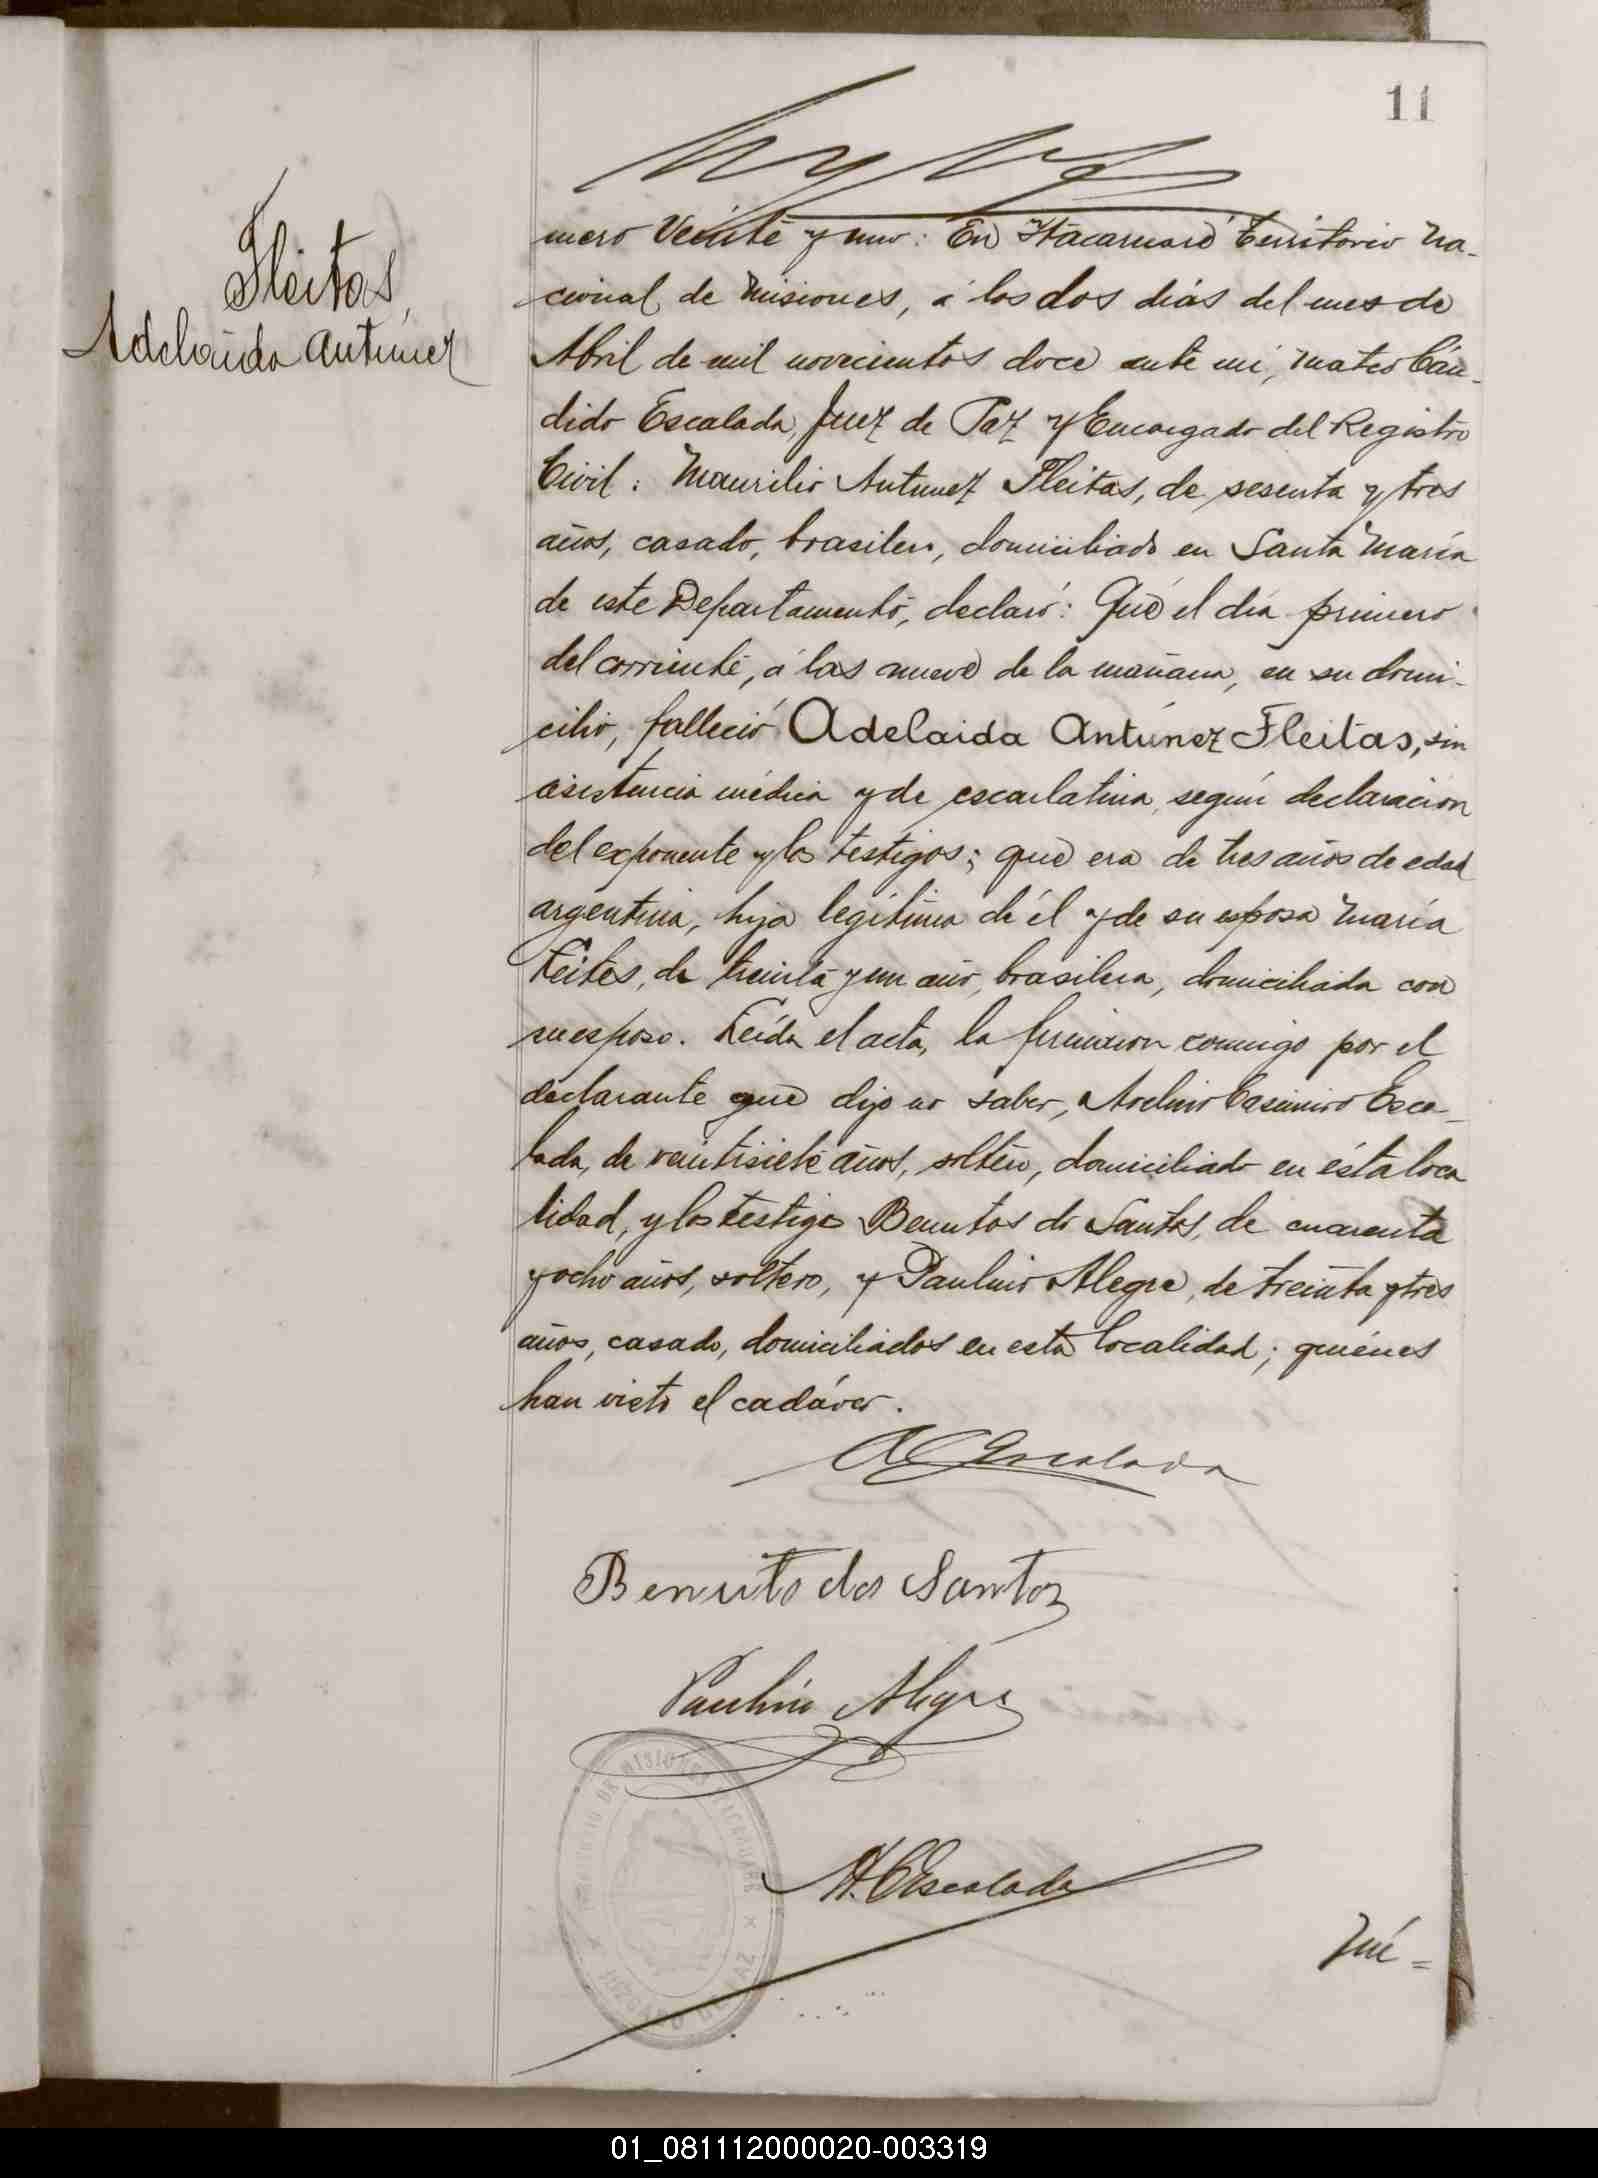 11
Fleitas,
Adelaida Antunez
mero Veinte y uno: En Itacaruaré Territorio Na-
cional de Misiones, á los dos dias del mes de
Abril de mil novecientos doce ante mi, Mateo Cán-
dido Escalada, Juez de Paz y Encargado del Registro
Civil: Maurilio Antunez Fleitas, de sesenta y tres
años, casado, brasilero, domiciliado en Santa María
de este Departamento, declaró: Que el dia primero
del corriente, á las nueve de la mañana, en su domi-
cilio, falleció Adelaida Antúnez Fleitas, sin
asistencia médica y de escarlatina, según declaración
del exponente y los testigos; que era de tres años de edad
argentina, hija legítima de él y de su esposa María
de treinta y un año, brasilera, domiciliada con
su esposo. Leída el acta, la firmaron conmigo por el
declarante que dijo no saber, Avelino Casimiro Esca-
lada, de veintisiete años, soltero, domiciliado en ésta loca
lidad, y los testigos de Santos, de cuarenta
y ocho años, soltero, y Paulino Alegre, de treinta y tres
años, casado, domiciliados en esta localidad; quiénes
han visto el cadáver.
A C Escalada
Benuto dos Santos
Paulino Alegre
M. C Escalada
Nú=
01_081112000020-003319